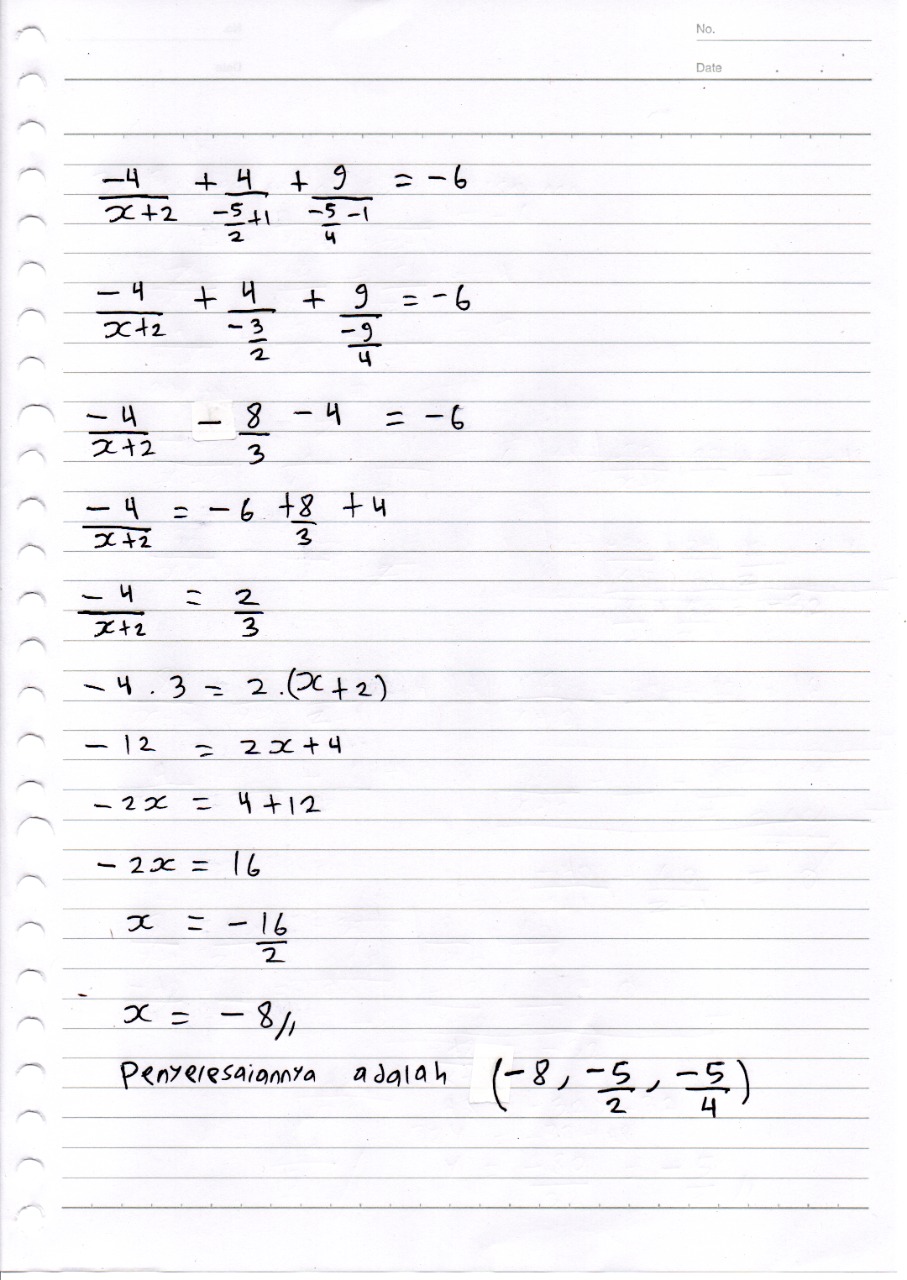 No.
Date
-4/(x+2) + 4/(-5/2+1) + 9/(-5/4-1) = -6
-4/(x+2) + 4/(-3/2) + 9/(-9/4) = -6
-4/(x+2) - 8/3 - 4 = -6
-4/(x+2) = -6 +8/3 +4
-4/(x+2) = 2/3
-4 . 3 = 2.(x+2)
-12 = 2x+4
-2x = 4+12
-2x = 16
x = -16/2
x = -8//
Penyelesaiannya adalah (-8, -5/2, -5/4)